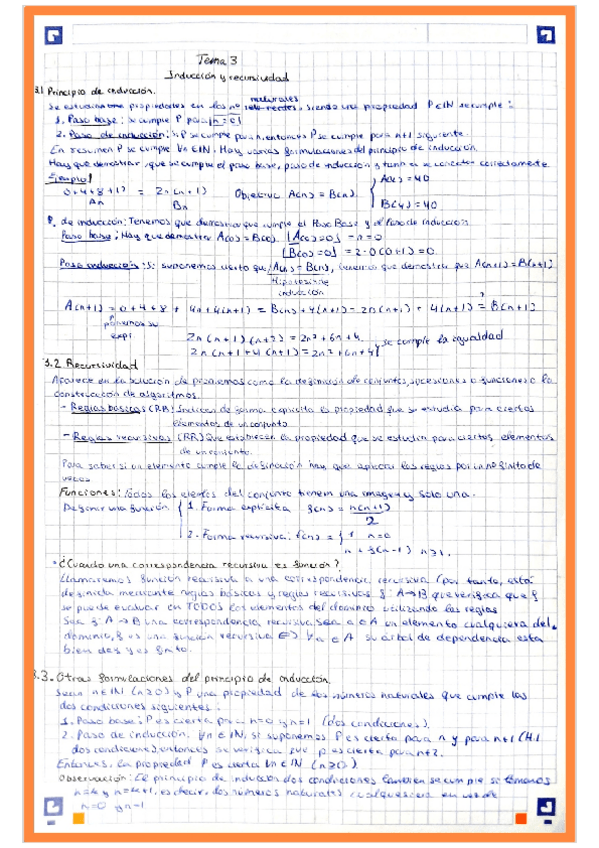 Tema 3
Inducción y recursividad
3.1 Principio de inducción.
naturales
Se estudian propiedades en los nº, siendo una propiedad P∈IN se cumple:
1. Paso base: se cumple P para n=0
2. Paso de inducción: si P se cumple para n, entonces P se cumple para n+1 siguiente.
En resumen P se cumple ∀n∈IN. Hay varias formulaciones del principio de inducción.
Hay que demostrar, que se cumple el paso base, paso de inducción y correctamente
Ejemplo!
0+4+8+ = 2n(n+1) Objectivo: A(n) = B(n).
An Bn
P. de inducción: Tenemos que demostrar que cumple el Paso Base y el Paso de inducción
Paso base: Hay que demostrar A(0)=B(0)
B(0)=0 = 2·0(0+1)=0
Paso inducción: Si suponemos cierto que A(n)=B(n), que demostrar que A(n+1)=B(n+1)
Hipótesis
inducción
A(n+1) = 0+4+8 + 4n+4(n+1) = B(n)+4(n+1) = 2n(n+1) + 4(n+1) ?= B(n+1)
ponemos su
expr
2n(n+1)+4(n+1)=2n²+6n+4
se cumple la igualdad
3.2 Recursividad
Aparece en la solución de problemas como la definición de conjuntos, sucesiones o funciones o la
construcción de algoritmos.
- Reglas básicas (RB) Indican de forma explícita la propiedad que se estudia para ciertos
elementos de un conjunto
- Reglas recursivas (RR) Que establecen la propiedad que se estudia para ciertos elementos
de un conjunto.
Para saber si un elemento cumple la definición hay que aplicar las reglas por un nº finito de
veces
Funciones: Todos los elementos del conjunto tienen una imagen y solo una.
Definir una función { 1. Forma explícita f(n) = n(n+1)
2
2. Forma recursiva: f(n) = { 1 n=0
n + f(n-1) n≥1.
• ¿Cuando una correspondencia recursiva es función?
Llamaremos función recursiva a una correspondencia recursiva (por tanto, está
definida mediante reglas básicas y reglas recursivas f: A→B que verifica que f
se puede evaluar en TODOS los elementos del dominio utilizando las reglas
Sea f: A→B una correspondencia recursiva, sea a∈A un elemento cualquiera del
dominio, f es una función recursiva ⇔ ∀a∈A su árbol de dependencia esta
bien def y es finito.
3.3. Otras formulaciones del principio de inducción.
Sean n∈IN (n≥0) y P una propiedad de los números naturales que cumple las
dos condiciones siguientes:
1. Paso base: P es cierta para n=0 y n=1 (dos condiciones).
2. Paso de inducción. ∀n∈IN, si suponemos P es cierta para n y para n+1 (H.I
dos condiciones), entonces se verifica que P es cierta para n+2.
Entonces, la propiedad P es cierta ∀n∈IN (n≥0).
Observación: El principio de inducción dos condiciones también se cumple si tomamos
n=k y n=k+1, es decir, dos números naturales cualesquiera en vez de
n=0 y n=1